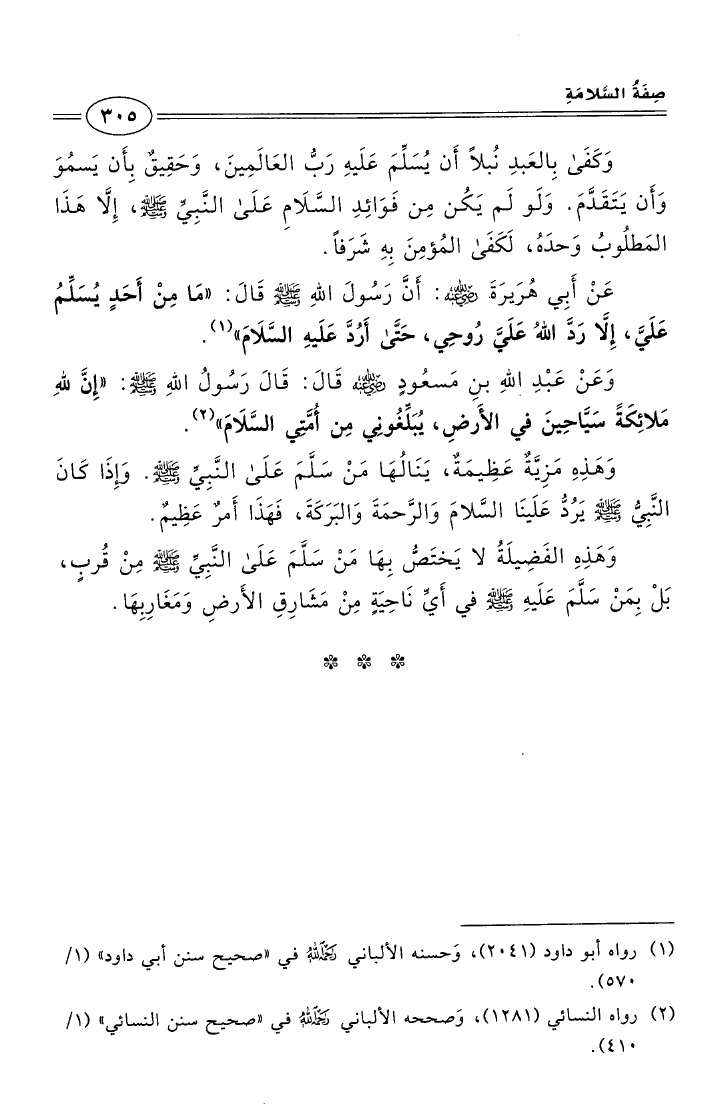 صِفَةُ السَّلامَةِ
٣٠٥
وَكَفَىٰ بِالعَبدِ نُبلاً أَن يُسَلِّمَ عَلَيهِ رَبُّ العَالَمِينَ، وَحَقِيقٌ بِأَن يَسمُوَ
وَأَن يَتَقَدَّمَ. وَلَو لَم يَكُن مِن فَوَائِدِ السَّلَامِ عَلَىٰ النَّبِيِّ ﷺ، إِلَّا هَذَا
المَطلُوبُ وَحدَهُ، لَكَفَىٰ المُؤمِنَ بِهِ شَرَفاً.
عَنْ أَبِي هُرَيرَةَ رضي الله عنه: أَنَّ رَسُولَ اللهِ ﷺ قَالَ: «مَا مِنْ أَحَدٍ يُسَلِّمُ
عَلَيَّ، إِلَّا رَدَّ اللهُ عَلَيَّ رُوحِي، حَتَّىٰ أَرُدَّ عَلَيهِ السَّلَامَ»(١).
وَعَنْ عَبْدِ اللهِ بنِ مَسعُودٍ رضي الله عنه قَالَ: قَالَ رَسُولُ اللهِ ﷺ: «إِنَّ لِلهِ
مَلَائِكَةً سَيَّاحِينَ في الأَرضِ، يُبَلِّغُونِي مِن أُمَّتِي السَّلَامَ»(٢).
وَهَذِهِ مَزِيَّةٌ عَظِيمَةٌ، يَنَالُهَا مَنْ سَلَّمَ عَلَىٰ النَّبِيِّ ﷺ. وَإِذَا كَانَ
النَّبِيُّ ﷺ يَرُدُّ عَلَينَا السَّلَامَ وَالرَّحمَةَ وَالبَرَكَةَ، فَهَذَا أَمرٌ عَظِيمٌ.
وَهَذِهِ الفَضِيلَةُ لا يَختَصُّ بِهَا مَنْ سَلَّمَ عَلَىٰ النَّبِيِّ ﷺ مِنْ قُربٍ،
بَلْ بِمَنْ سَلَّمَ عَلَيهِ ﷺ في أَيِّ نَاحِيَةٍ مِنْ مَشَارِقِ الأَرضِ وَمَغَارِبِهَا.
(١) رواه أبو داود (٢٠٤١)، وَحسنه الألباني رحمه الله في «صحيح سنن أبي داود» (١/
٥٧٠).
(٢) رواه النسائي (١٢٨١)، وَصححه الألباني رحمه الله في «صحيح سنن النسائي» (١/
٤١٠).